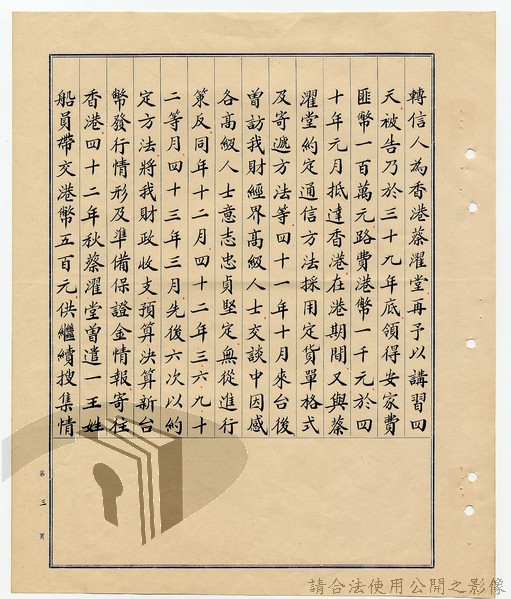 轉信人為香港蔡濯堂再予以講習四
天被告乃於三十九年底領得安家費
匪幣一百萬元路費港幣一千元於四
十年元月抵達香港在港期間又與蔡
濯堂約定通信方法採用定貨單格式
及寄遞方法等四十一年十月來台後
曾訪我財經界高級人士交談中因感
各高級人士意志忠貞堅定無從進行
策反同年十二月四十二年三六九十
二等月四十三年三月先後六次以約
定方法將我財政收支預算決算新台
幣發行情形及準備保證金情報寄往
香港四十二年秋蔡濯堂曾遣一王姓
船員帶交港幣五百元供繼續搜集情
第三頁
請合法使用公開之影像